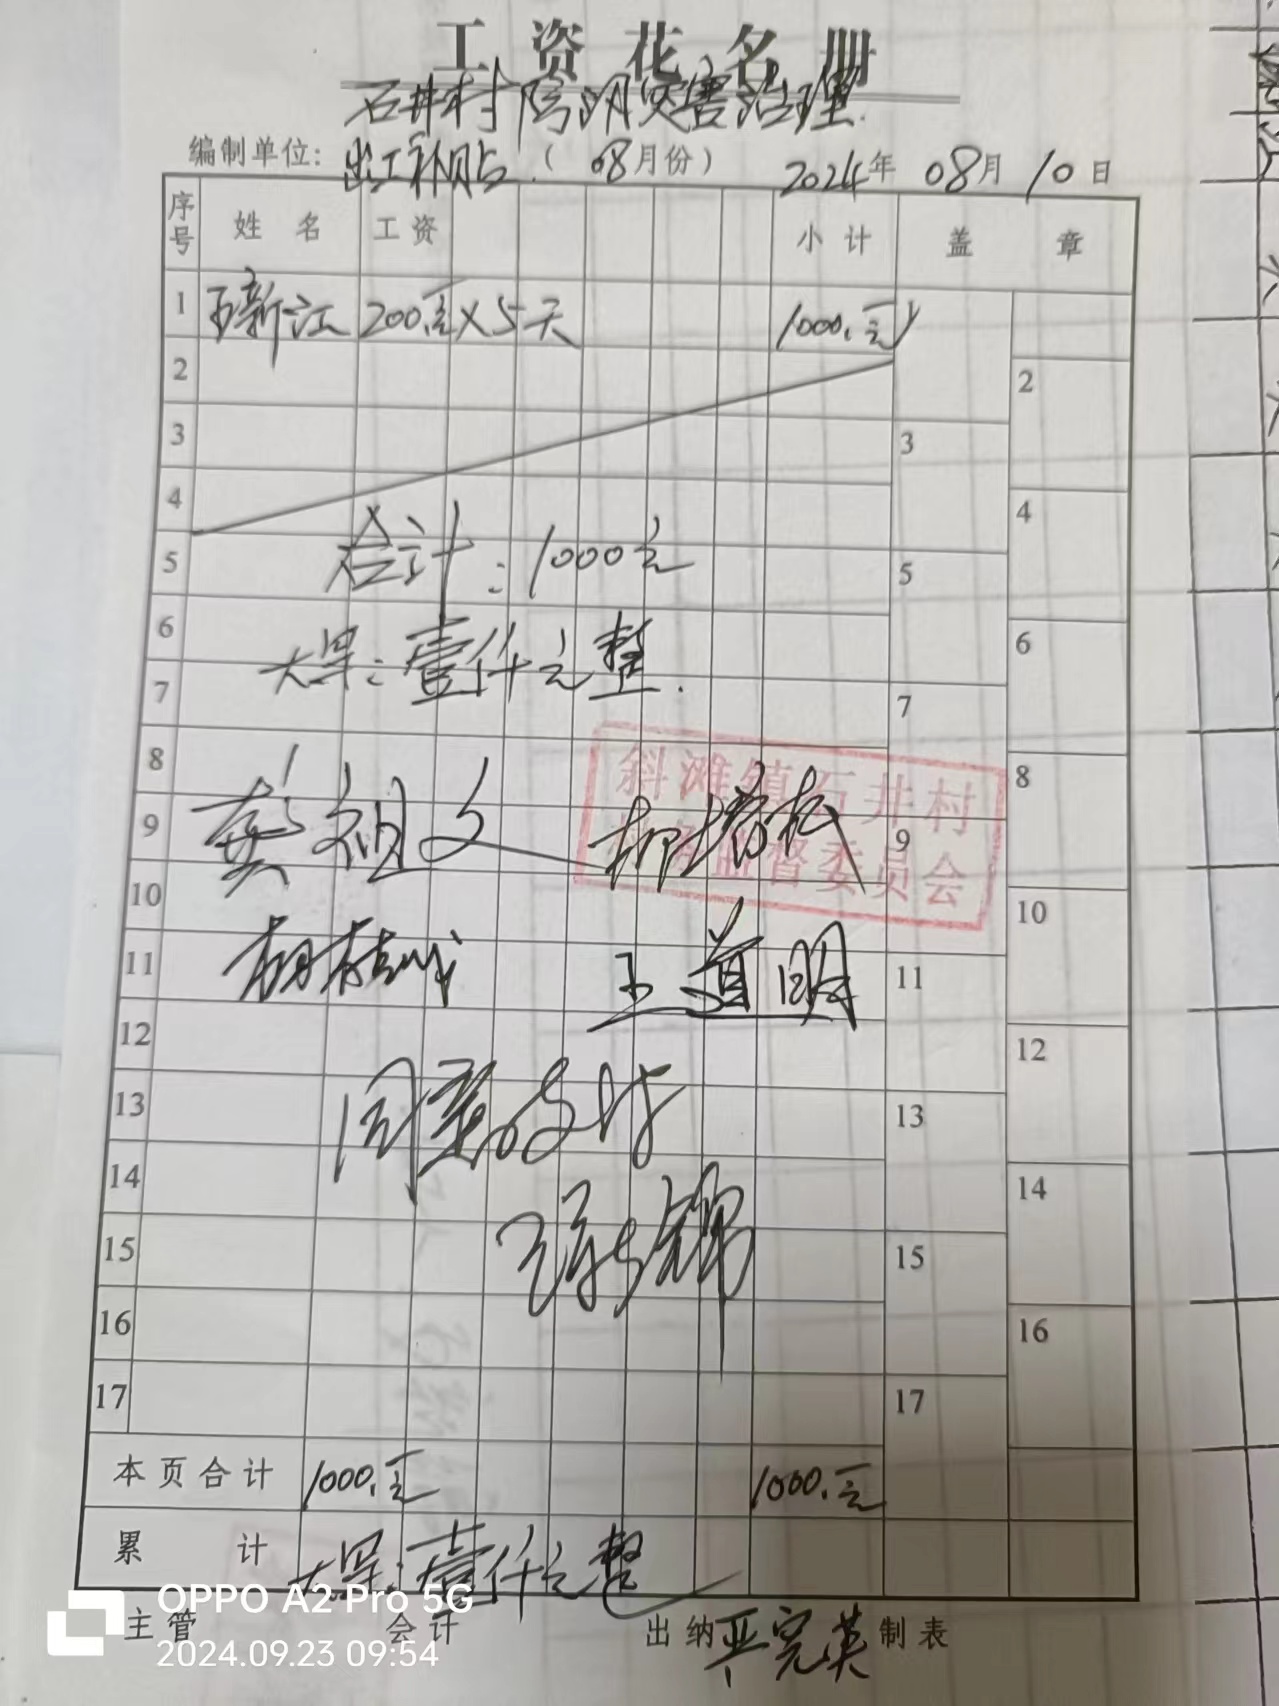 工资花名册
石井村 灾害治理
编制单位: 出工补贴 (08月份) 2024年08月10日
序号 姓名 工资 小计 盖章
1 新江 200元×5天 1000.元
2 2
3 3
4 4
合计:1000元
5 5
6 6
大写:壹仟元整.
7 7
8 8
斜滩镇石井村
龚祖文 柳培松
9 9
监督委员会
10 10
胡桂成 王道明
11 11
12 12
同意支付
13 13
14 14
15 15
16 16
17 17
本页合计 1000.元 1000.元
累计 大写:壹仟元整
主管 会计 出纳 严完英 制表
OPPO A2 Pro 5G
2024.09.23 09:54